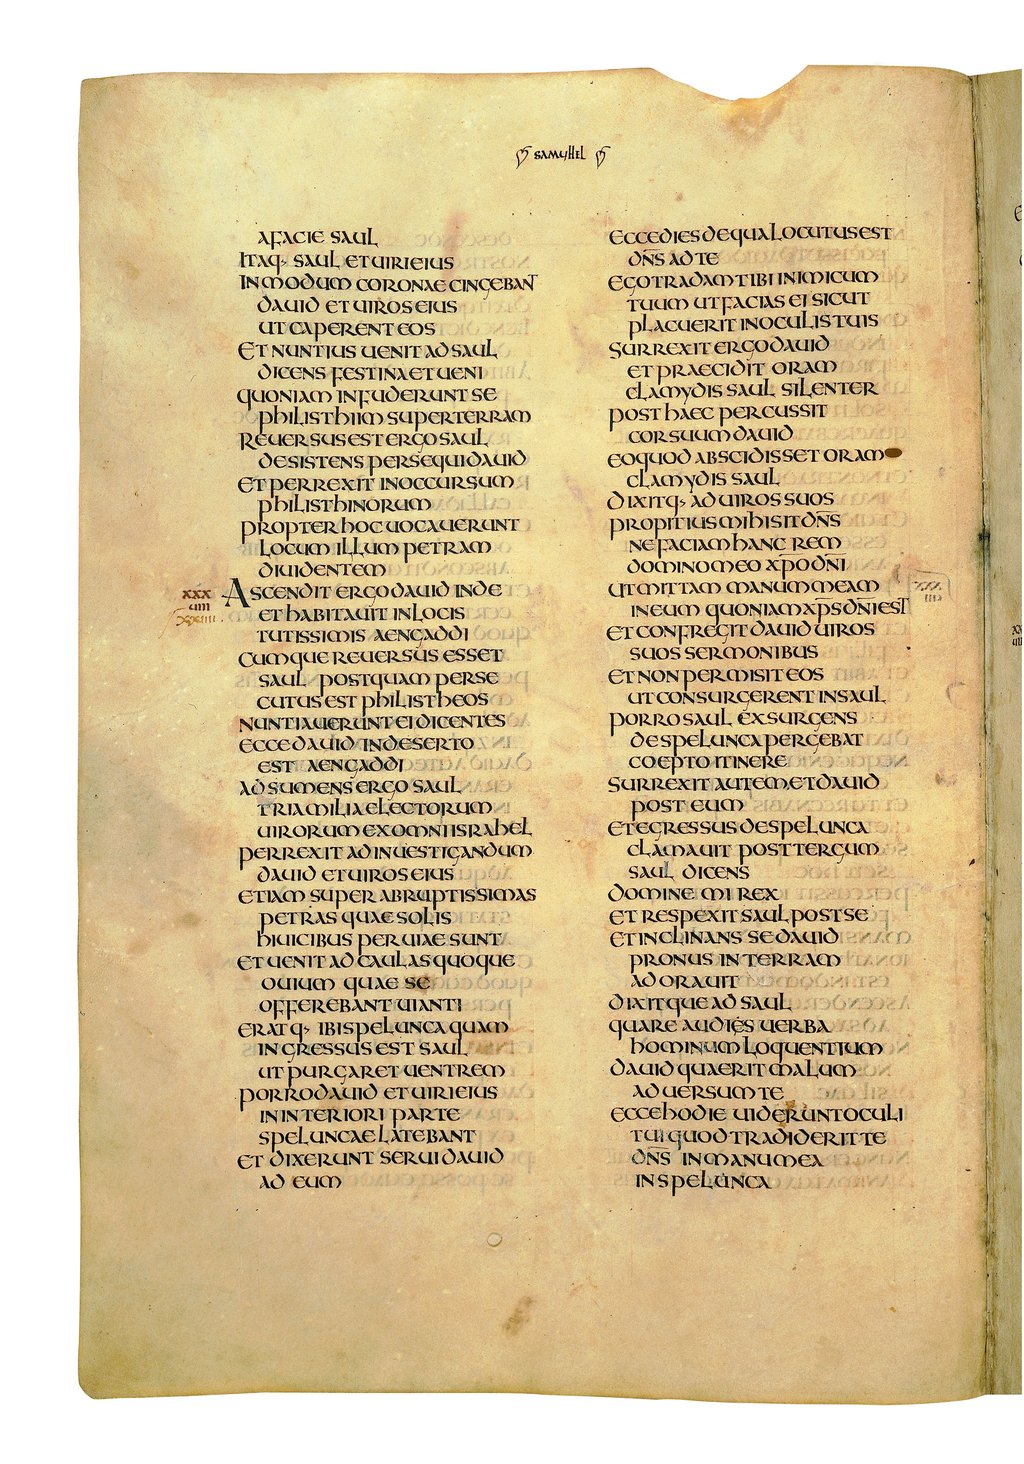 SAMUHEL
A FACIE SAUL
ITAQ· SAUL ET UIRI EIUS
IN MODUM CORONAE CINGEBANT
DAUID ET UIROS EIUS
UT CAPERENT EOS
ET NUNTIUS UENIT AD SAUL
DICENS FESTINA ET UENI
QUONIAM INFUDERUNT SE
PHILISTHIIM SUPER TERRAM
REUERSUS EST ERGO SAUL
DESISTENS PERSEQUI DAUID
ET PERREXIT IN OCCURSUM
PHILISTHINORUM
PROPTER HOC UOCAUERUNT
LOCUM ILLUM PETRAM
DIUIDENTEM
XXX
IIII
ASCENDIT ERGO DAUID INDE
ET HABITAUIT IN LOCIS
TUTISSIMIS AENGADDI
CUMQUE REUERSUS ESSET
SAUL POSTQUAM PERSE
CUTUS EST PHILISTHEOS
NUNTIAUERUNT EI DICENTES
ECCE DAUID IN DESERTO
EST AENGADDI
ADSUMENS ERGO SAUL
TRIA MILIA ELECTORUM
UIRORUM EX OMNI ISRAHEL
PERREXIT AD INUESTIGANDUM
DAUID ET UIROS EIUS
ETIAM SUPER ABRUPTISSIMAS
PETRAS QUAE SOLIS
HIUICIBUS PERUIAE SUNT
ET UENIT AD CAULAS QUOQUE
OUIUM QUAE SE
OFFEREBANT UIANTI
ERATQ· IBI SPELUNCA QUAM
INGRESSUS EST SAUL
UT PURGARET UENTREM
PORRO DAUID ET UIRI EIUS
IN INTERIORI PARTE
SPELUNCAE LATEBANT
ET DIXERUNT SERUI DAUID
AD EUM
ECCE DIES DE QUA LOCUTUS EST
DN̄S AD TE
EGO TRADAM TIBI INIMICUM
TUUM UT FACIAS EI SICUT
PLACUERIT IN OCULIS TUIS
SURREXIT ERGO DAUID
ET PRAECIDIT ORAM
CLAMYDIS SAUL SILENTER
POST HAEC PERCUSSIT
COR SUUM DAUID
EO QUOD ABSCIDISSET ORAM
CLAMYDIS SAUL
DIXITQ· AD UIROS SUOS
PROPITIUS MIHI SIT DN̄S
NE FACIAM HANC REM
DOMINO MEO XP̄O DN̄I
UT MITTAM MANUM MEAM
IN EUM QUONIAM XP̄S DN̄I EST
ET CONFREGIT DAUID UIROS
SUOS SERMONIBUS
ET NON PERMISIT EOS
UT CONSURGERENT IN SAUL
PORRO SAUL EXSURGENS
DE SPELUNCA PERGEBAT
COEPTO ITINERE
SURREXIT AUTEM ET DAUID
POST EUM
ET EGRESSUS DE SPELUNCA
CLAMAUIT POST TERGUM
SAUL DICENS
DOMINE MI REX
ET RESPEXIT SAUL POST SE
ET INCLINANS SE DAUID
PRONUS IN TERRAM
ADORAUIT
DIXITQUE AD SAUL
QUARE AUDIES UERBA
HOMINUM LOQUENTIUM
DAUID QUAERIT MALUM
ADUERSUM TE
ECCE HODIE UIDERUNT OCULI
TUI QUOD TRADIDERIT TE
DN̄S IN MANU MEA
IN SPELUNCA